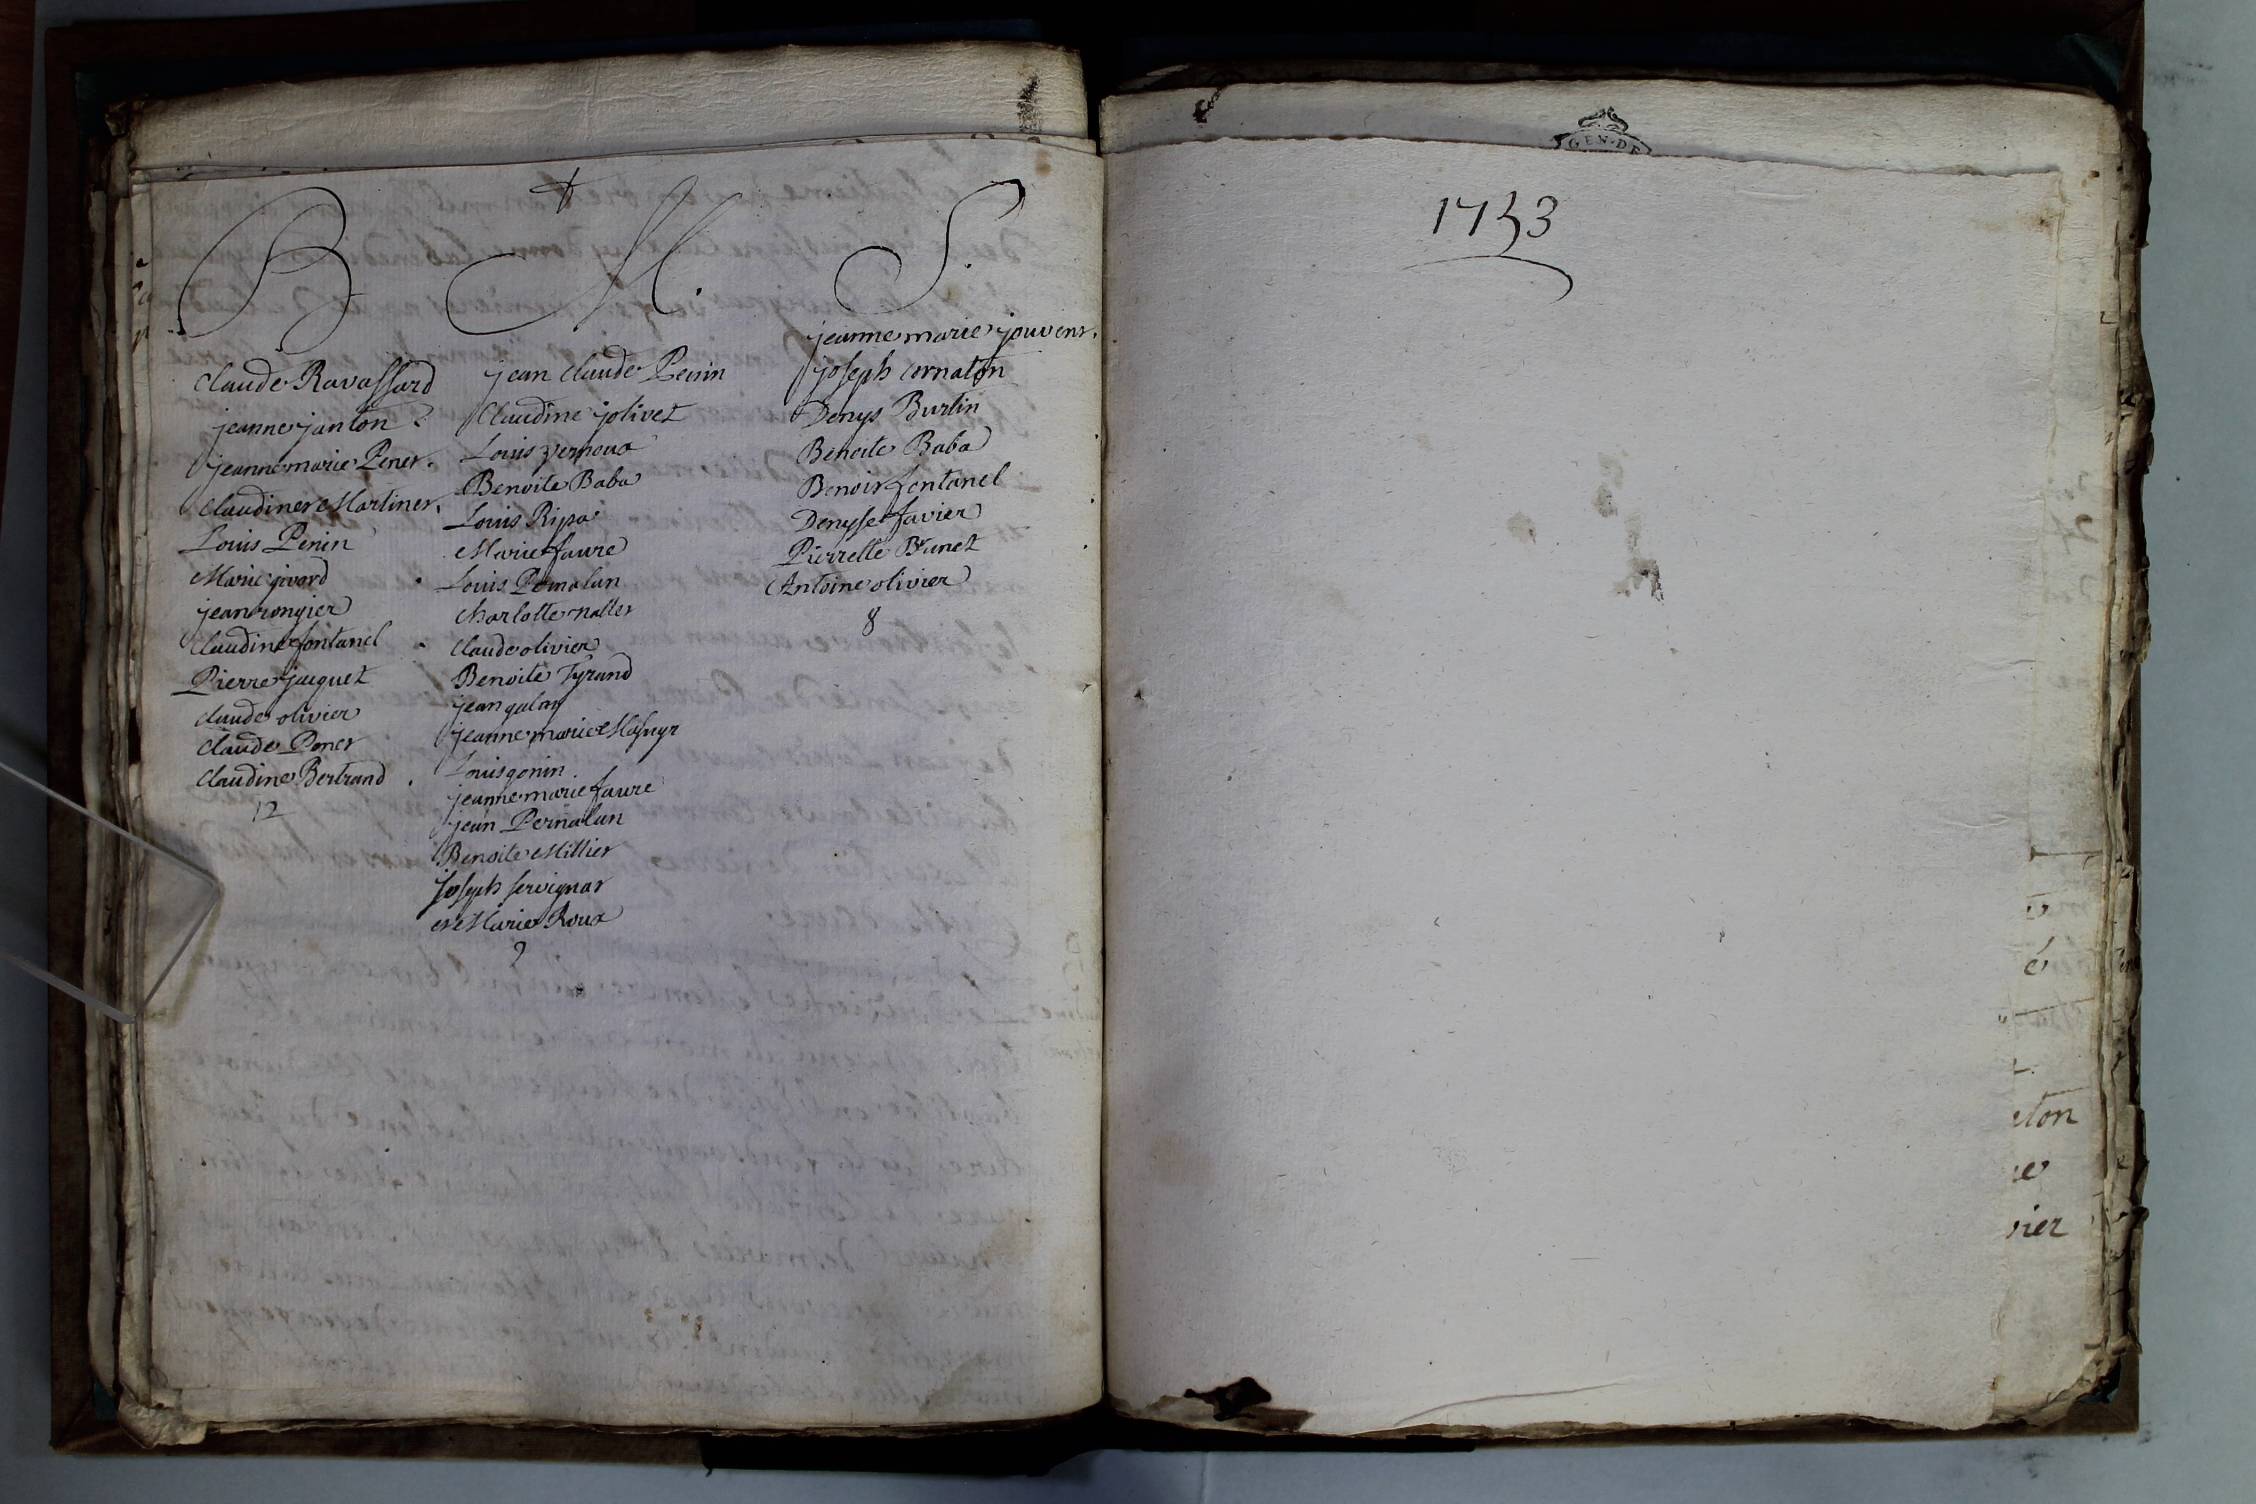 B
M.
S.
Claude Ravassard
jeanne janton
jeanne marie Pener.
Claudine Martiner.
Louis Penin
Marie givord
jean rongier
Claudine fontanel
Pierre jacquet
Claude olivier
Claude Poner
Claudine Bertrand
12
jean Claude Penin
Claudine jolivet
Louis vernoux
Benoite Baba
Louis Ripa
Marie faure
Louis Pernalun
Charlotte naller
Claude olivier
Benoite Tyrand
jean galay
jeanne marie
Louis gonin
jeanne marie faure
jean Pernalun
Benoite Millier
joseph servignar
et Marie Roux
9
jeanne marie jouvenr.
joseph cornaton
Denys Burlin
Benoite Baba
Benoir fontanel
Denyse favier
Pierrette Brunet
Antoine olivier
8
GEN. DE
1753